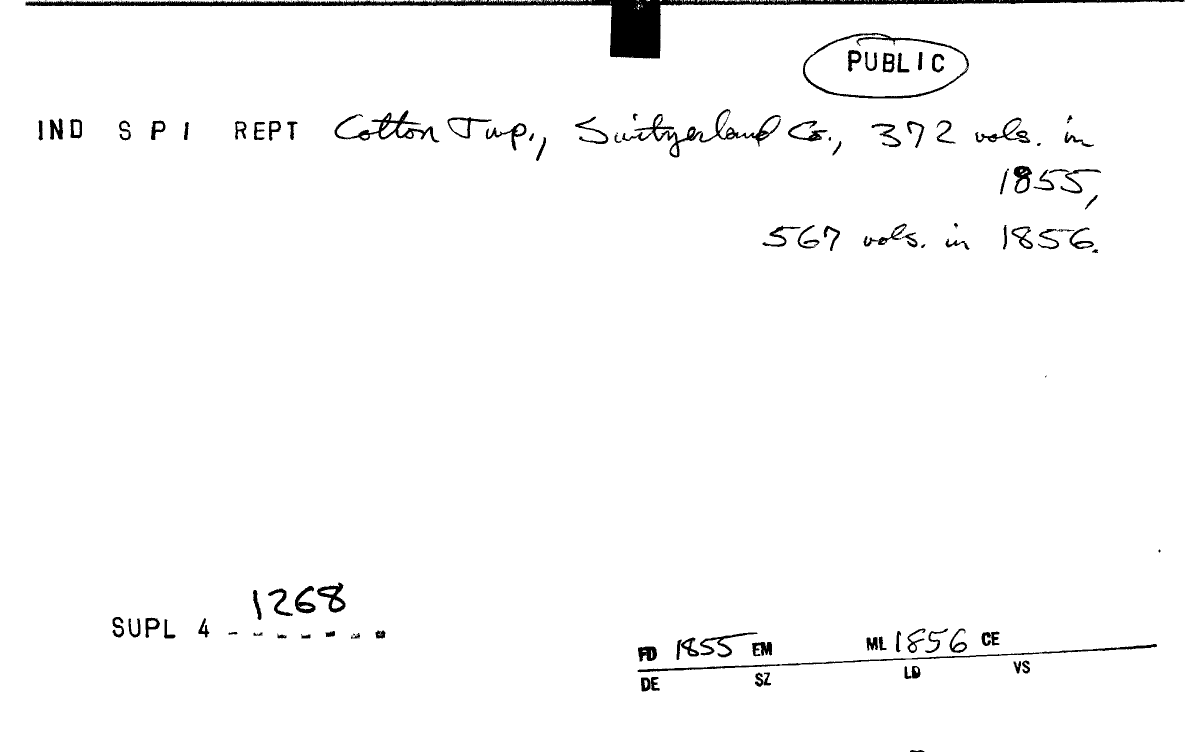 PUBLIC
IND S P I REPT Cotton Twp., Switzerland Co., 372 vols. in
1855,
567 vols. in 1856.
1268
SUPL 4 - - - - - - -
FD 1855 EM ML 1856 CE
DE SZ LD VS